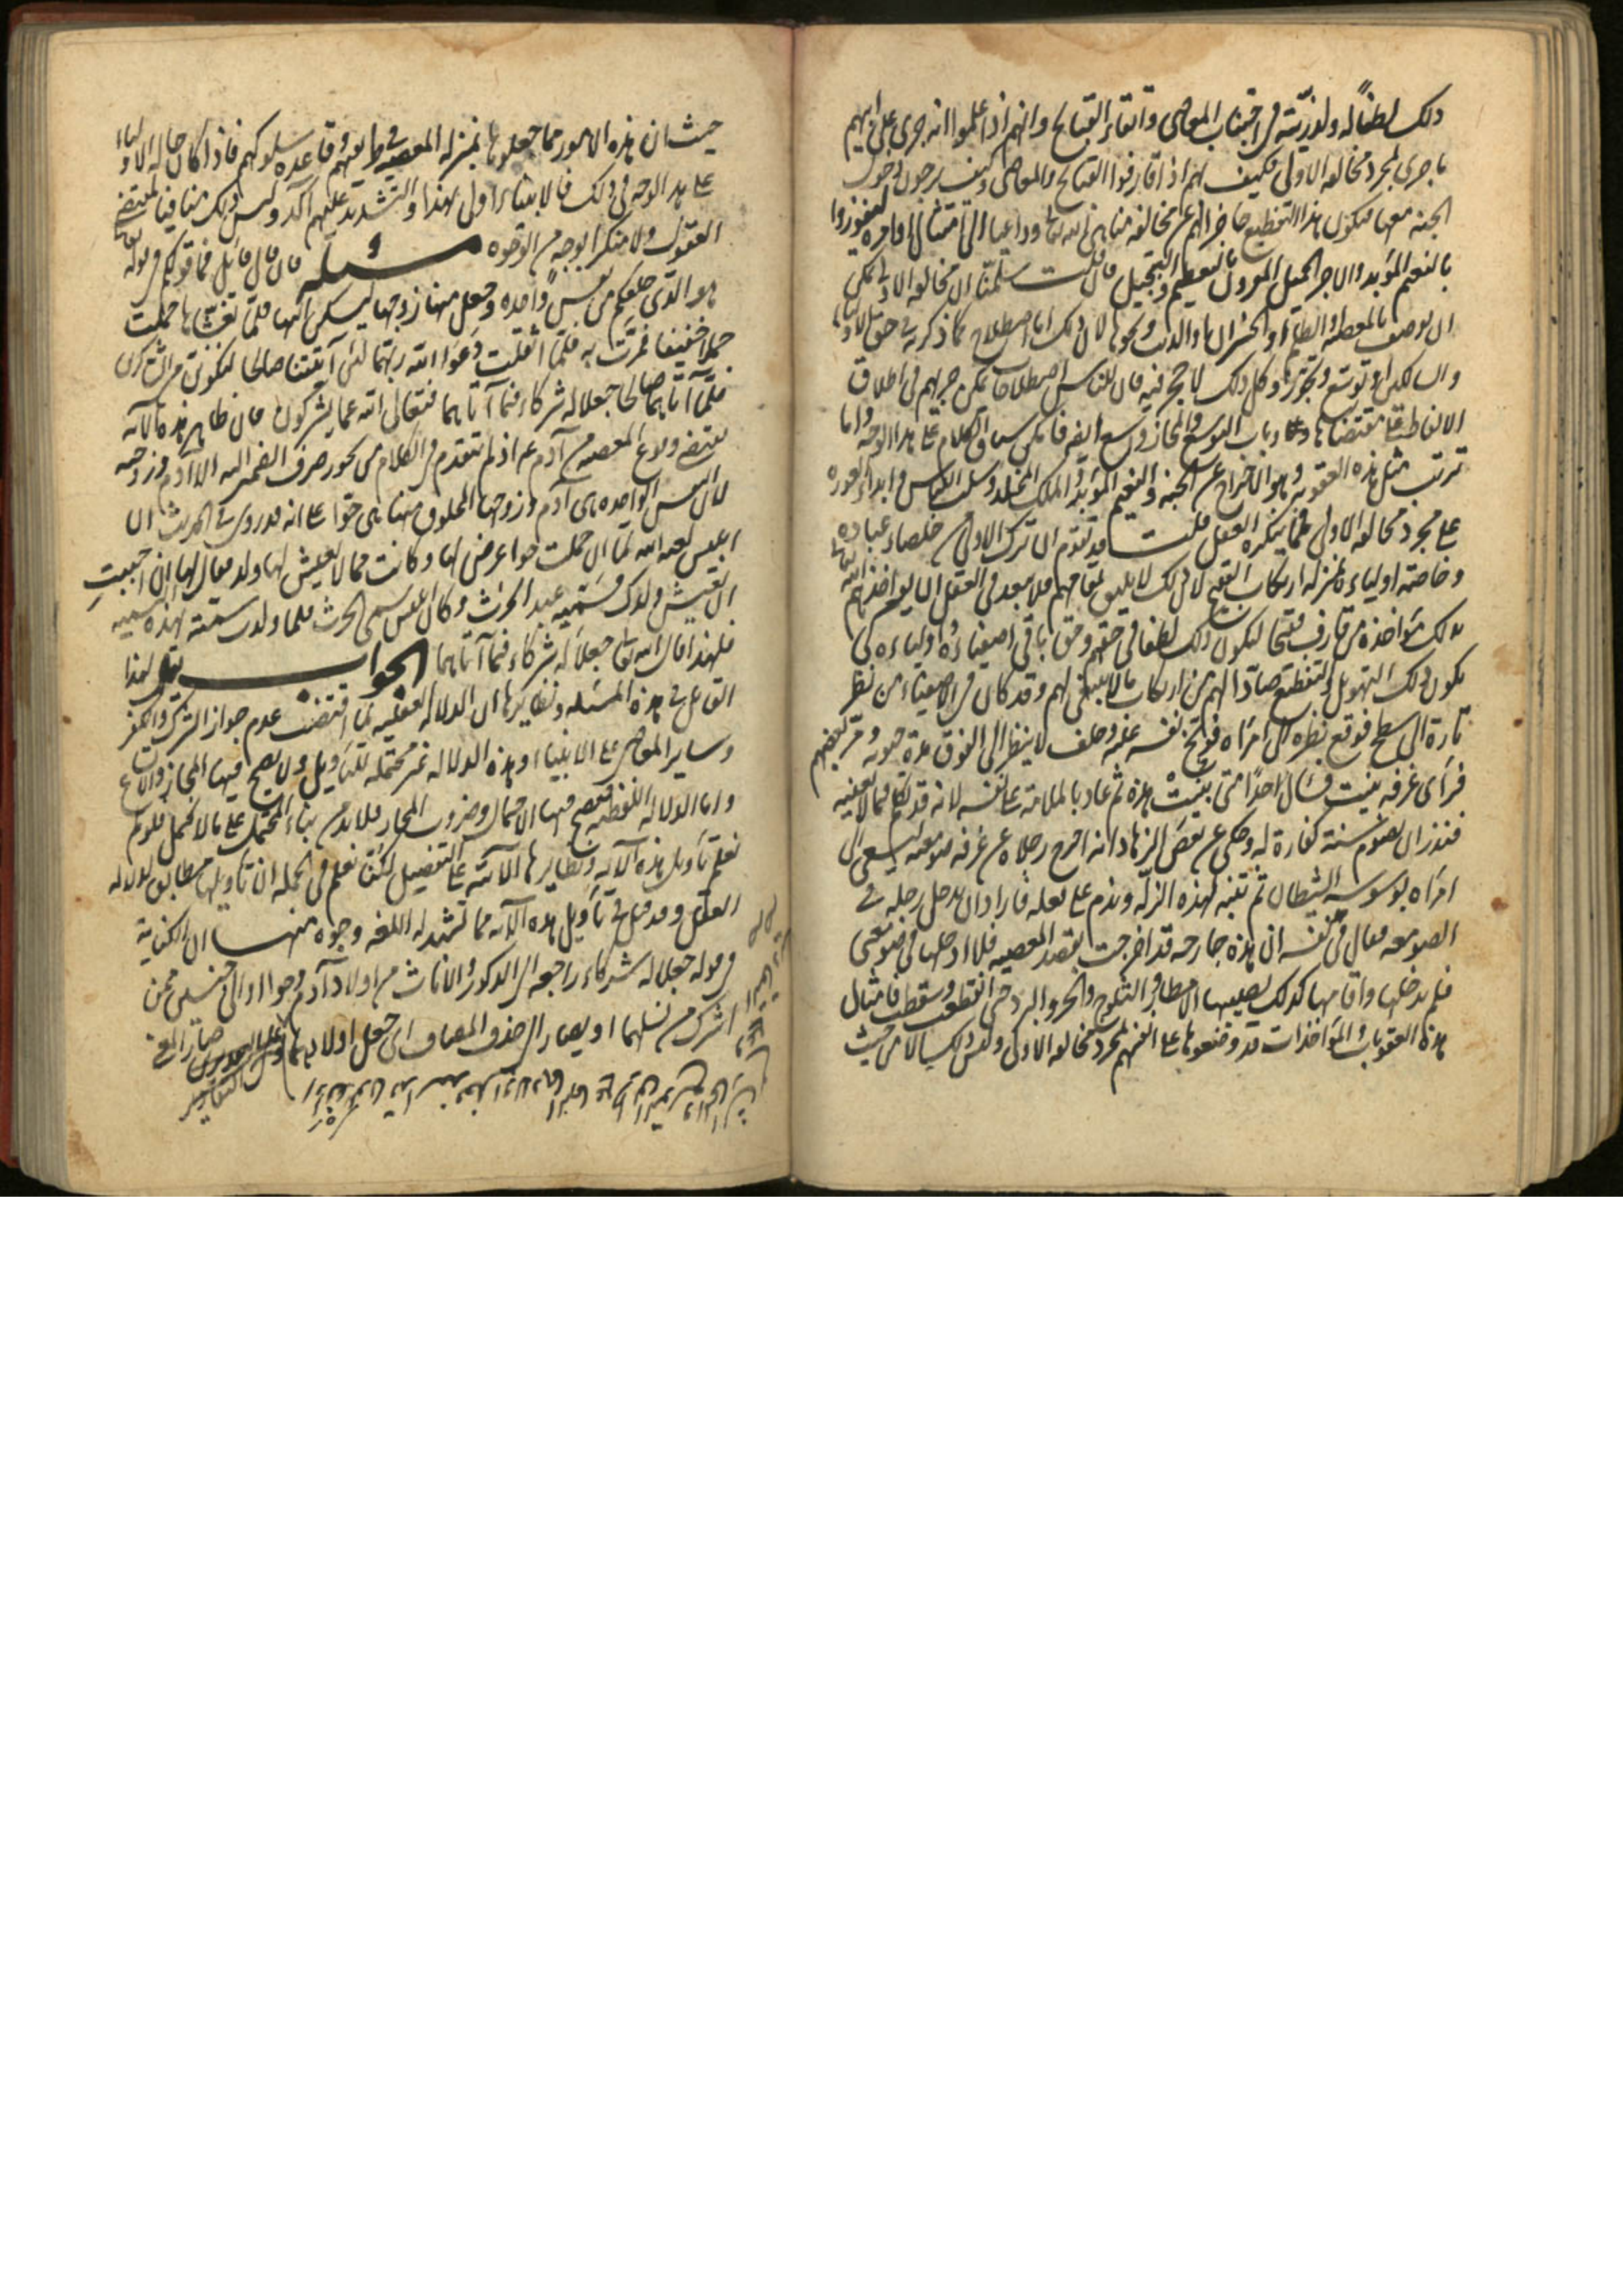 ذلك لطفا له ولذريته في اجتناب المعاصي واتقاء القبائح وانهم اذا علموا انه جرى على ابيهم
ما جرى لمجرد مخالفة الاولى فكيف بهم اذا قارفوا القبائح والمعاصي وكيف يرجون دخول
الجنة معها فيكون هذا التفظيع حاجزا لهم عن مخالفة مناهي الله تعالى وداعيا الى امتثال اوامره ليفوزوا
بالنعيم المؤبد والاجر الجميل المقرون بالتعظيم والتبجيل فان قلت سلمنا ان مخالفة الاولى يمكن
ان يوصف بالمعصية والظلم والخسران والذنب ونحوها لان ذلك اما اصطلاح كما ذكرته في حق
واما توسع وتجوز وكل ذلك لا حجر فيه فان للناس اصطلاحات يمكن جريهم في اطلاق
الالفاظ على مقتضاها وباب التوسع والمجاز واسع ايضا فامكن سياق الكلام على هذا الوجه واما
ترتب مثل هذه العقوبة وهو الاخراج عن الجنة والنعيم المؤبد والملك المخلد وسلب اللباس وابداء العورة
على مجرد مخالفة الاولى فمما ينكره العقل قلت قد تقدم ان ترك الاولى من خلصاء عباده
وخاصة اوليائه بمنزلة ارتكاب القبيح لان ذلك لا يليق بمقامهم فلا يبعد في العقل ان يؤاخذهم الله تعالى
بذلك مؤاخذة من قارف قبيحا ليكون ذلك لطفا في حقهم وحق باقي اصفيائه واوليائه كي
يكون ذلك التهويل والتفظيع صادا لهم عن ارتكاب ما لا ينبغي لهم وقد كان في الاصفياء من نظر
تارة الى سطح فوقع نظره الى امراة فوبخ نفسه عليه وحلف لا ينظر الى الفوق مدة حيوته ومر بعضهم
فراى غرفة بنيت فسال احدا متى بنيت هذه ثم عاد بالملامة على نفسه لانه قد تكلم فيما لا يعنيه
فنذر ان يصوم سنة كفارة له وحكي عن بعض الزهاد انه اخرج رجلاه عن غرفة صومعته ليسعى الى
امراة بوسوسة الشيطان ثم تنبه لهذه الزلة وندم على فعله فاراد ان يدخل رجله في
الصومعة فقال في نفسه ان هذه جارحة قد اخرجت بقصد المعصية فلا ادخلها في صومعتي
فلم يدخلها واقامها كذلك يصيبها الامطار والثلوج والحر والبرد حتى انقطعت وسقطت فامثال
هذه العقوبات والمؤاخذات قد وضعوها على انفسهم لمجرد مخالفة الاولى وليس ذلك الا من حيث
حيث ان هذه الامور مما جعلوها بمنزلة المعصية في طريقتهم وقاعدة سلوكهم فاذا كان حال الاولياء
على هذا الوجه في ذلك فالانبياء اولى بهذا والتشديد عليهم آكد وليس ذلك منافيا لمقتضى
العقول ولا منكرا بوجه من الوجوه مسئلة فان قال قائل فما قولكم في قوله تعالى
هو الذي خلقكم من نفس واحدة وجعل منها زوجها ليسكن اليها فلما تغشيها حملت
حملا خفيفا فمرت به فلما اثقلت دعوا الله ربهما لئن آتيتنا صالحا لنكونن من الشاكرين
فلما آتاهما صالحا جعلا له شركاء فيما آتاهما فتعالى الله عما يشركون فان ظاهر هذه الآية
يقتضي وقوع المعصية من آدم ع اذ لم يتقدم في الكلام من يجوز صرف الضمير اليه الا آدم وزوجته
لان النفس الواحدة هي آدم وزوجها المخلوق منها هي حوا على انه قد روي في الحديث ان
ابليس لعنه الله لما ان حملت حوا عرض لها وكانت مما لا يعيش لها ولد فقال لها ان احببت
ان يعيش ولدك فسميه عبد الحرث وكان ابليس سمى الحرث فلما ولدت سمته بهذه التسمية
فلهذا قال الله تعالى جعلا له شركاء فيما آتاهما الجواب يقال لهذا
القائل في هذه المسئلة ونظايرها ان الدلالة العقلية لما اقتضت عدم جواز الشرك والكفر
وساير المعاصي على الانبياء وهذه الدلالة غير محتملة للتاويل ولا يصح فيها المجاز والاتساع
واما الدلالة اللفظية فيصح فيها الاحتمال وضروب المجاز فلا بد من بناء المحتمل على ما لا يحتمل فلو لم
نعلم تاويل هذه الآية ونظايرها الآتية على التفصيل لكنا نعلم في الجملة ان تاويلها مطابق لدلالة
العقل وقد قيل في تاويل هذه الآية مما تشهد له اللغة وجوه منها ان الكناية
في قوله جعلا له شركاء راجعة الى الذكور والاناث من اولاد آدم وحوا او الى جنسين ممن
اشرك من نسلهما او يصار الى حذف المضاف اي جعل اولادهما